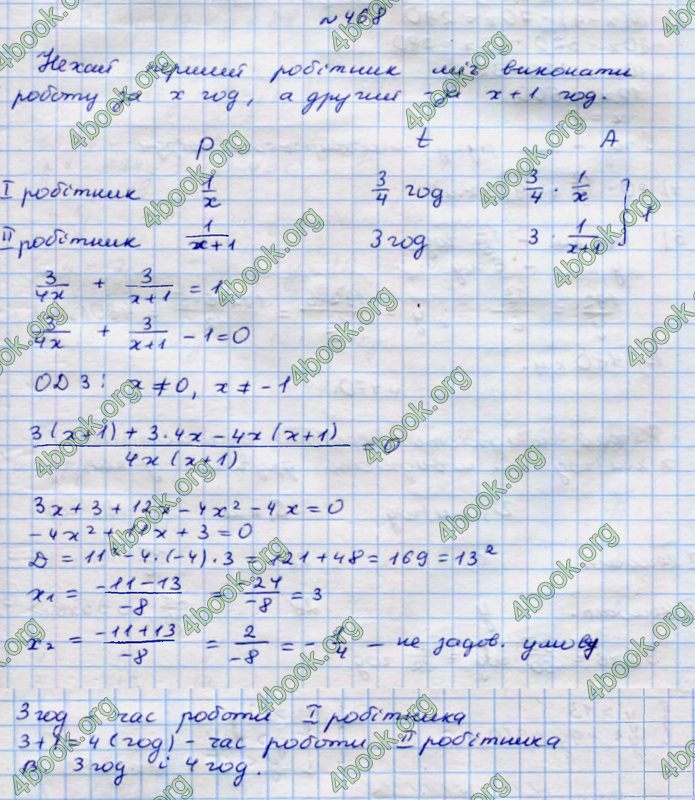 № 468
Нехай перший робітник міг виконати
роботу за x год, а другий - за x+1 год.
P t A
I робітник 1/x 3/4 год 3/4 · 1/x
II робітник 1/(x+1) 3 год 3 · 1/(x+1) } 1
3/(4x) + 3/(x+1) = 1
3/(4x) + 3/(x+1) - 1 = 0
ОДЗ: x ≠ 0, x ≠ -1
(3(x+1) + 3·4x - 4x(x+1))/(4x(x+1)) = 0
3x + 3 + 12x - 4x² - 4x = 0
-4x² + 11x + 3 = 0
D = 11² - 4·(-4)·3 = 121 + 48 = 169 = 13²
x₁ = (-11-13)/(-8) = (-24)/(-8) = 3
x₂ = (-11+13)/(-8) = 2/(-8) = -1/4 — не задов. умову
3 год - час роботи I робітника
3+1=4 (год) - час роботи II робітника
В. 3 год і 4 год.
4book.org